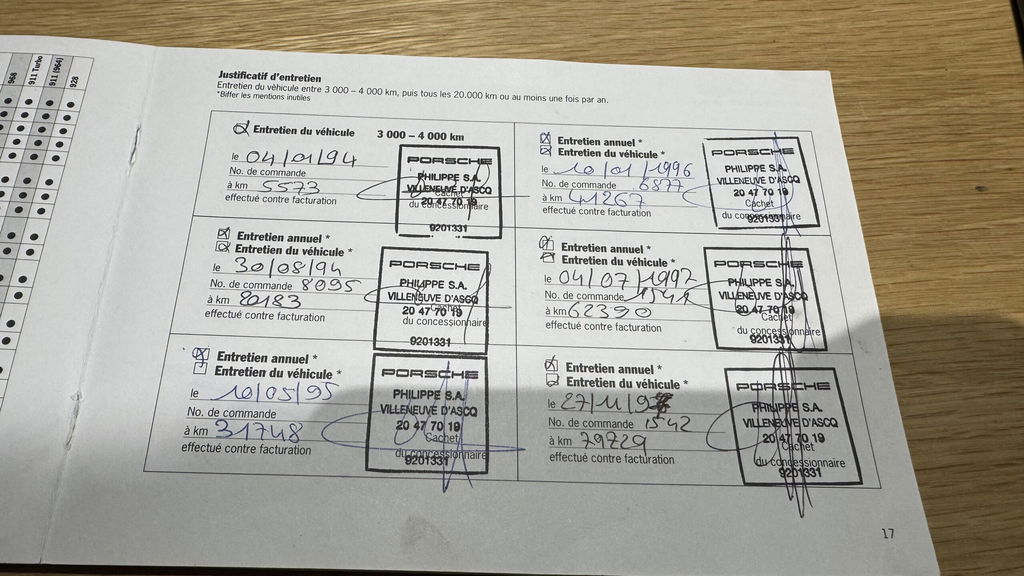 968
911 Turbo
911 (964)
928
Justificatif d'entretien
Entretien du véhicule entre 3 000 – 4 000 km, puis tous les 20.000 km ou au moins une fois par an.
*Biffer les mentions inutiles
Entretien du véhicule 3 000 – 4 000 km
le 04/01/94
No. de commande
à km 5573
effectué contre facturation
PORSCHE
PHILIPPE S.A.
VILLENEUVE D'ASCQ
20 47 70 19
Cachet
du concessionnaire
9201331
Entretien annuel *
Entretien du véhicule *
le 30/08/94
No. de commande 8095
à km 20183
effectué contre facturation
PORSCHE
PHILIPPE S.A.
VILLENEUVE D'ASCQ
20 47 70 19
Cachet
du concessionnaire
9201331
Entretien annuel *
Entretien du véhicule *
le 10/05/95
No. de commande
à km 31748
effectué contre facturation
PORSCHE
PHILIPPE S.A.
VILLENEUVE D'ASCQ
20 47 70 19
Cachet
du concessionnaire
9201331
Entretien annuel *
Entretien du véhicule *
le 10/01/1996
No. de commande 6877
à km 41267
effectué contre facturation
PORSCHE
PHILIPPE S.A.
VILLENEUVE D'ASCQ
20 47 70 19
Cachet
du concessionnaire
9201331
Entretien annuel *
Entretien du véhicule *
le 04/07/1997
No. de commande 1541
à km 62390
effectué contre facturation
PORSCHE
PHILIPPE S.A.
VILLENEUVE D'ASCQ
20 47 70 19
Cachet
du concessionnaire
9201331
Entretien annuel *
Entretien du véhicule *
le 27/11/9
No. de commande 1542
à km 79729
effectué contre facturation
PORSCHE
PHILIPPE S.A.
VILLENEUVE D'ASCQ
20 47 70 19
Cachet
du concessionnaire
9201331
17